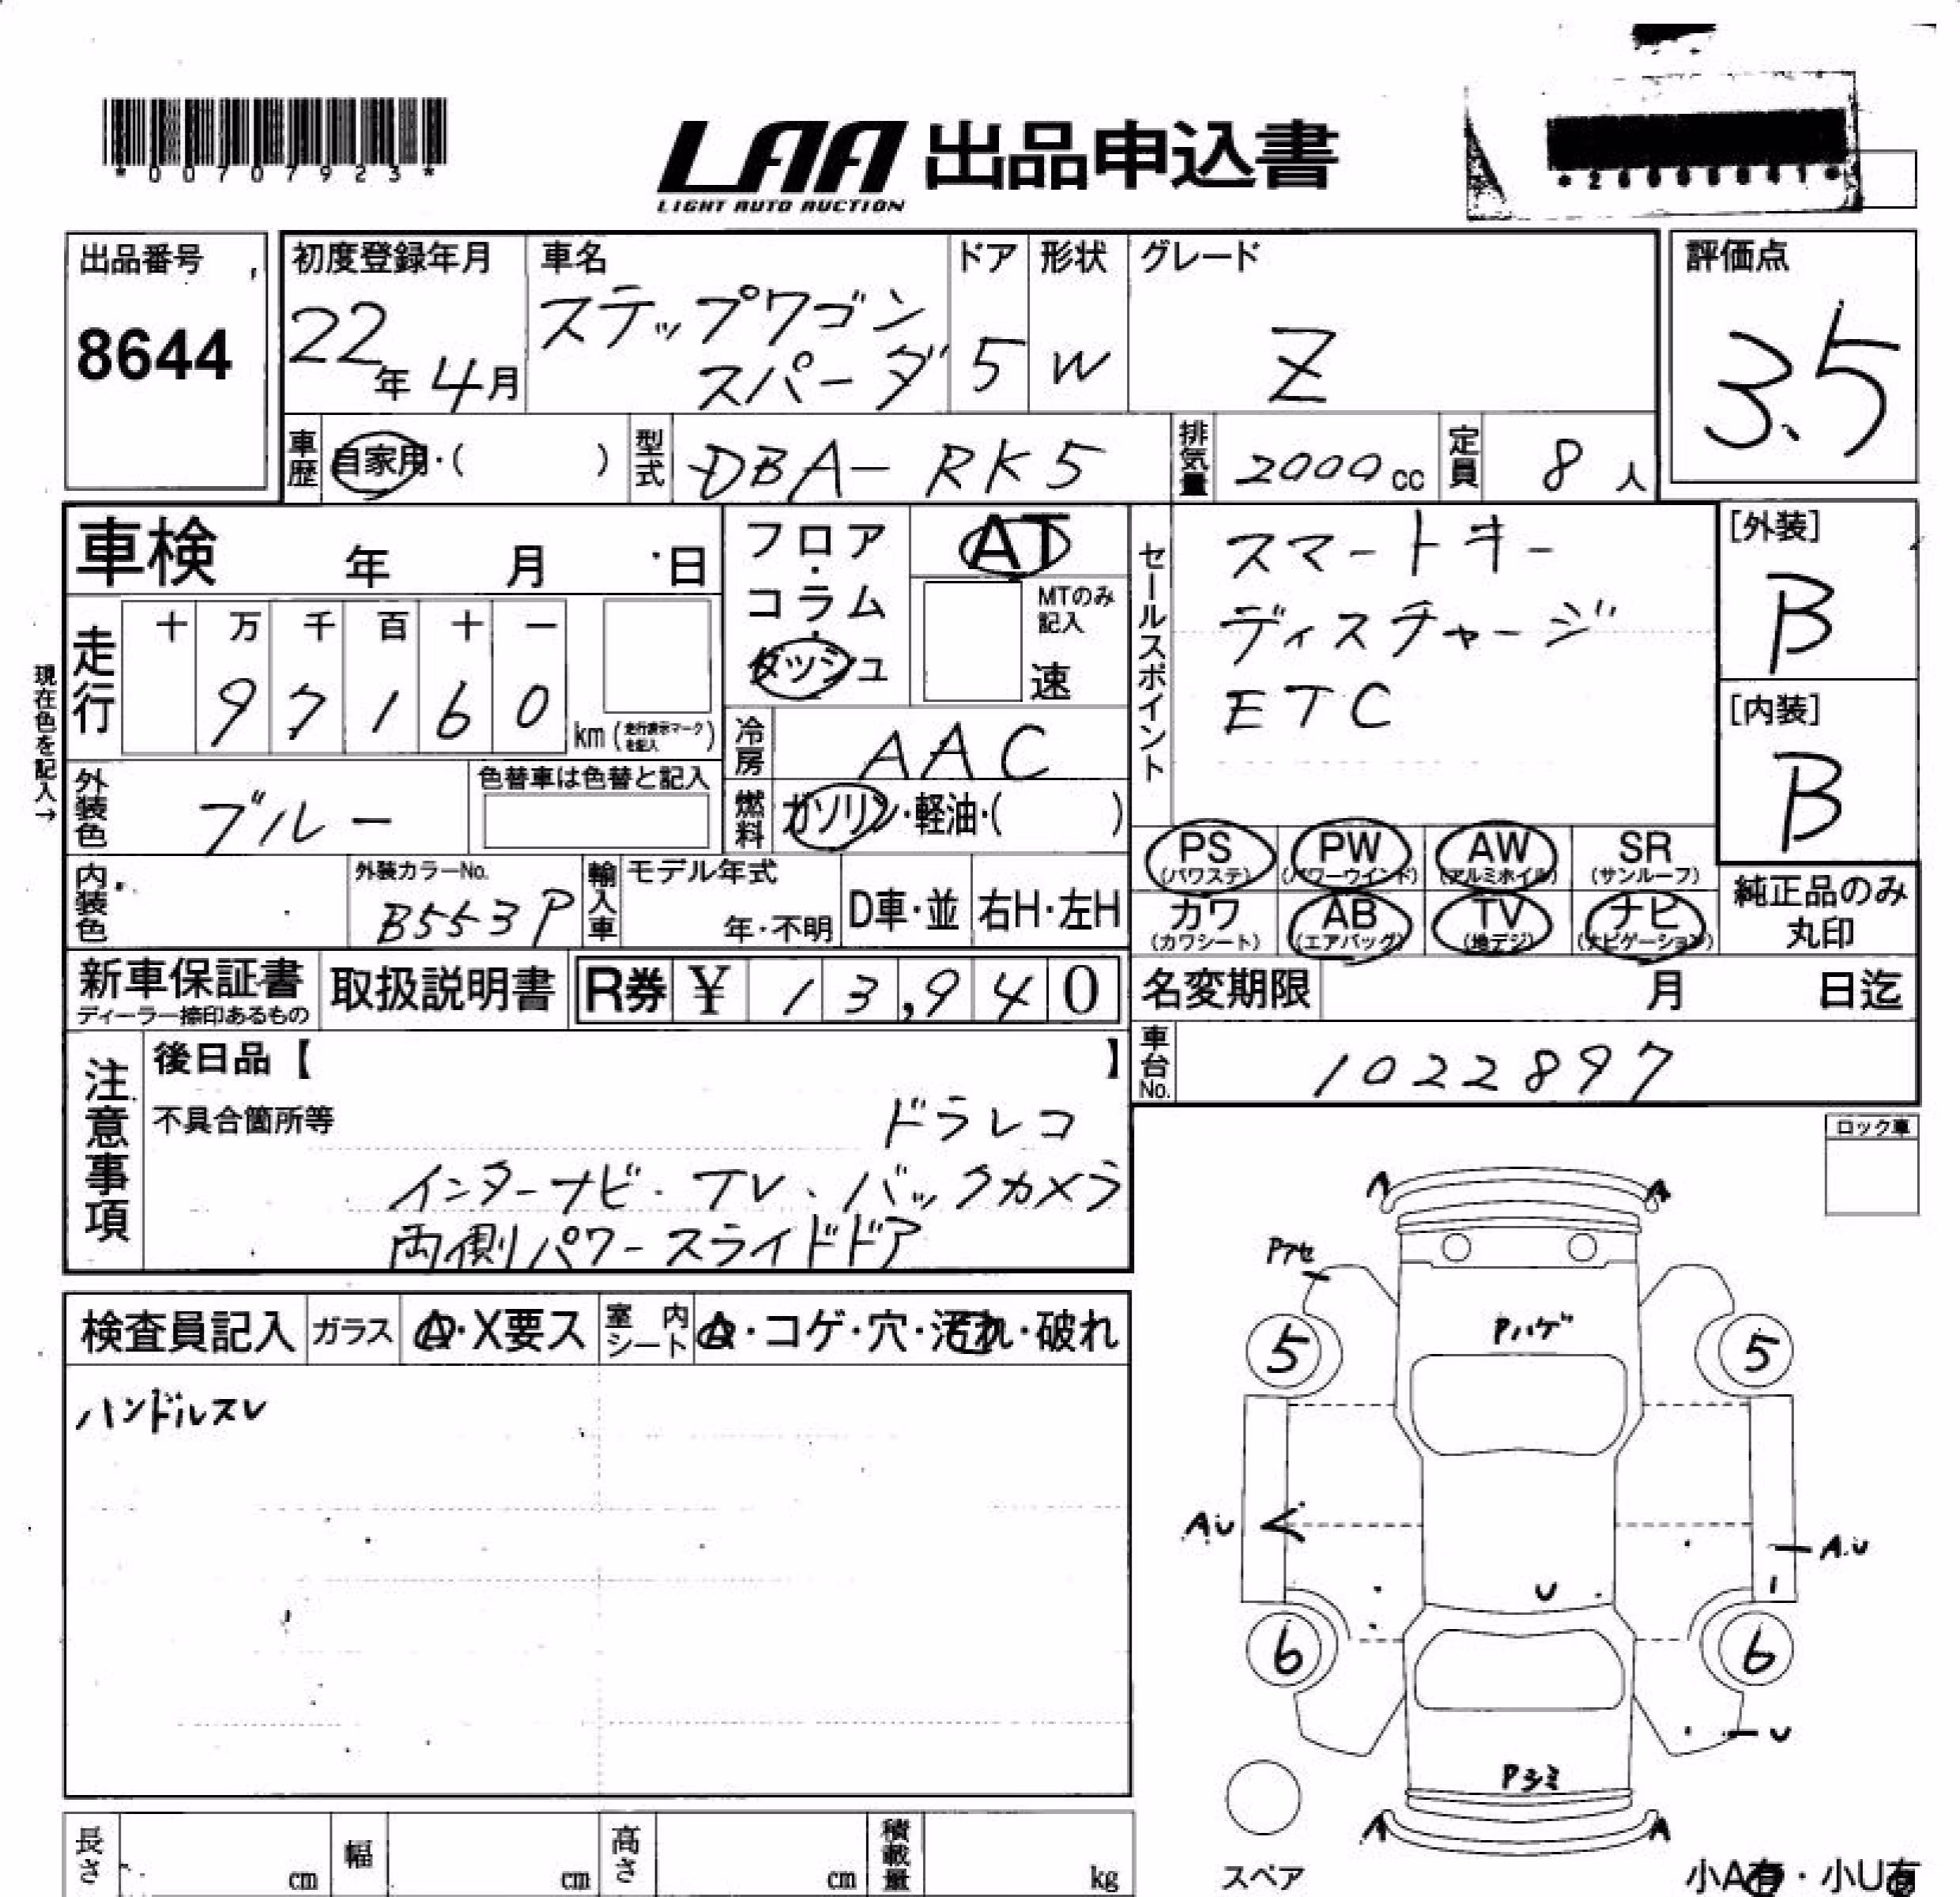 *00707923*
LAA 出品申込書
LIGHT AUTO AUCTION
出品番号
8644
初度登録年月
22年 4月
車名
ステップワゴン
スパーダ
ドア
5
形状
W
グレード
Z
評価点
3.5
車歴
自家用・( )
型式
DBA-RK5
排気量
2000cc
定員
8人
車検 年 月 日
走行
十 万 千 百 十 一
9 7 1 6 0
km (走行表示マークを記入)
現在色を記入→
フロア・コラム・ダッシュ
AT
MTのみ記入
速
冷房
AAC
燃料
ガソリン・軽油・( )
セールスポイント
スマートキー
ディスチャージ
ETC
[外装]
B
[内装]
B
外装色
ブルー
色替車は色替と記入
内装色
外装カラーNo.
B553P
輸入車
モデル年式
年・不明
D車・並
右H・左H
PS
(パワステ)
PW
(パワーウインド)
AW
(アルミホイル)
SR
(サンルーフ)
カワ
(カワシート)
AB
(エアバッグ)
TV
(地デジ)
ナビ
(ナビゲーション)
純正品のみ
丸印
新車保証書
ディーラー捺印あるもの
取扱説明書
R券 ¥ 13,940
名変期限 月 日迄
車台No.
1022897
注意事項
後日品【 】
不具合箇所等
ドラレコ
インターナビ・TV・バックカメラ
両側パワースライドドア
ロック車
検査員記入
ガラス
A・X要ス
室内シート
・コゲ・穴・汚れ・破れ
ハンドルスレ
A
A
Pアセ
Pハゲ
5
5
AU
AU
U
6
6
U
Pシミ
A
A
スペア
小A有・小U有
長さ cm
幅 cm
高さ cm
積載量 kg